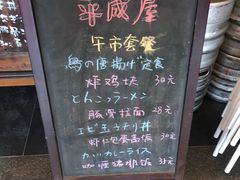 蔵屋
午市套餐
鳥の唐揚げ定食
炸鸡块 30元
とんこつラーメン
豚骨拉面 28元
エビ玉子とり丼
虾仁包蛋盖饭 30元
カツカレーライス
咖喱猪排饭 35元